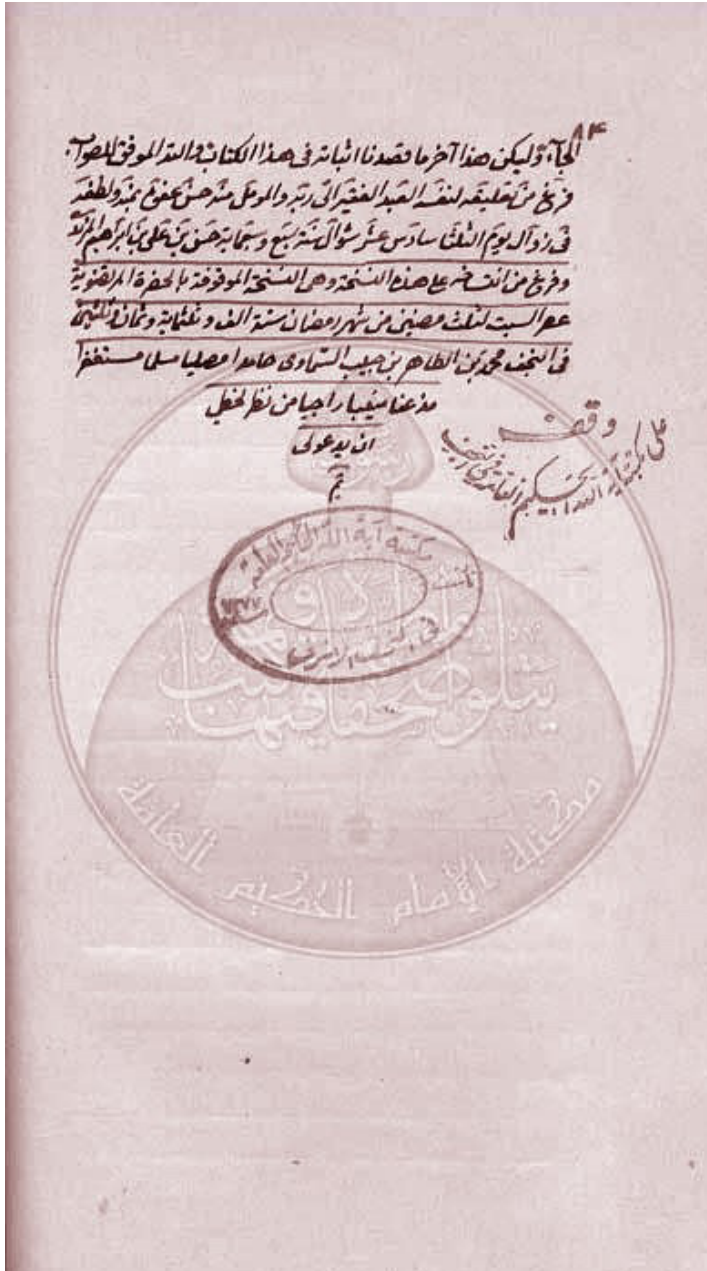 ٨٤
الجآء وليكن هذا آخر ما قصدنا اثباته فى هذا الكتاب والله الموفق للصواب
فرغ من تعليقه لنفسه العبد الفقير الى ربه والمومل منه حسن عفوه بمنه ولطفه
فى زوال يوم الثلثا سادس عشر شوال سنة سبع وسبعماية حسن بن على بن ابراهيم
وفرغ من على هذه النسخة وهى النسخة الموقوفة بالحضرة المرتضوية
عصر السبت لثلث مضين من شهر رمضان سنة الف وثلثماية وثمان وثلثين
فى النجف محمد بن الطاهر بن حبيب السماوى حامدا مصليا مسلما مستغفرا
مذعنا منيبا راجيا من نظر لخطى
ان يدعولى
تم
وقف
على مكتبة آية الله الحكيم العامة فى النجف
مكتبة آية الله الحكيم العامة
تأسست
سنة ١٣٧٧
فى النجف الاشرف
مكتبة الإمام الحكيم العامة